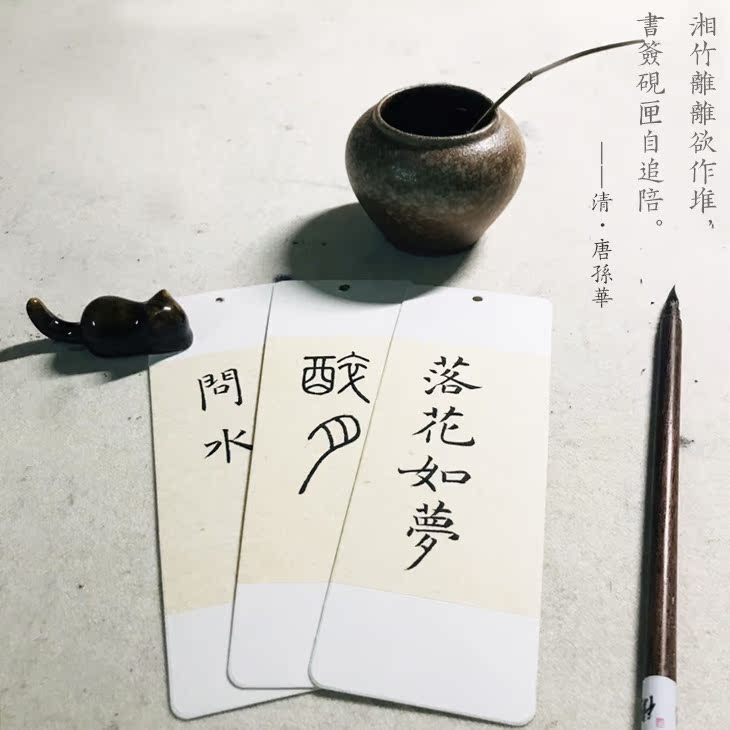 湘竹離離欲作堆，
書簽硯匣自追陪。
——清·唐孫華
落花如夢
醉月
問水